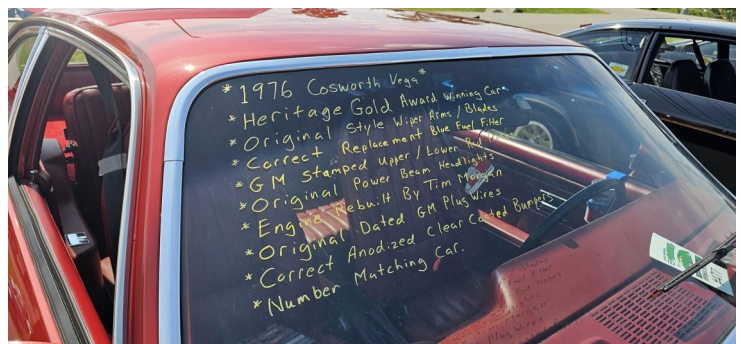 * 1976 Cosworth Vega *
* Heritage Gold Award Winning Car *
* Original Style Wiper Arms / Blades
* Correct Replacement Blue Fuel Filter
* GM Stamped Upper / Lower Rad
* Original Power Beam Headlights
* Engine Rebuilt By Tim Morgan
* Original Dated GM Plug Wires
* Correct Anodized Clear Coated Bumpers
* Number Matching Car.